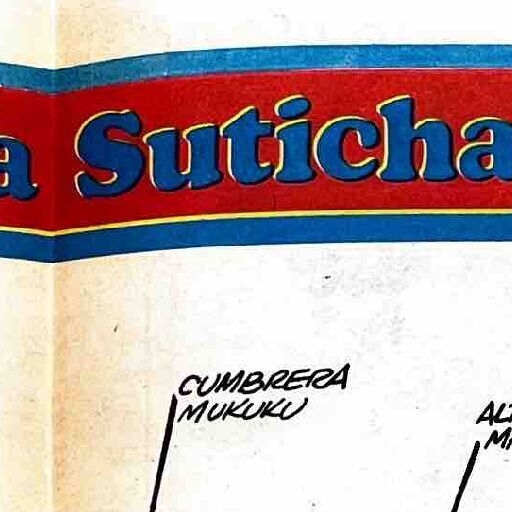 a Suticha
CUMBRERA
MUKUKU